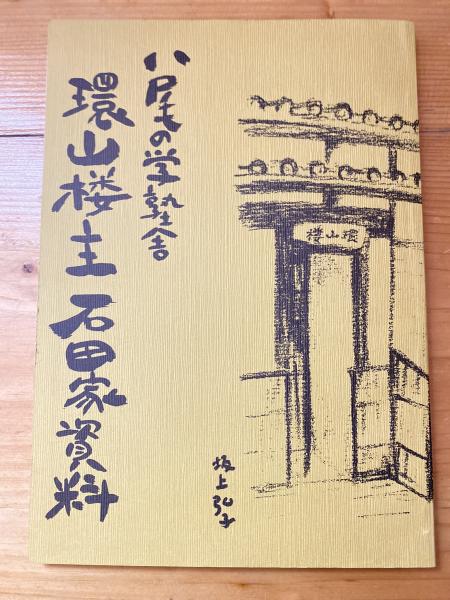 八尾の学塾舎
環山楼主石田家資料
環山楼
坂上弘子